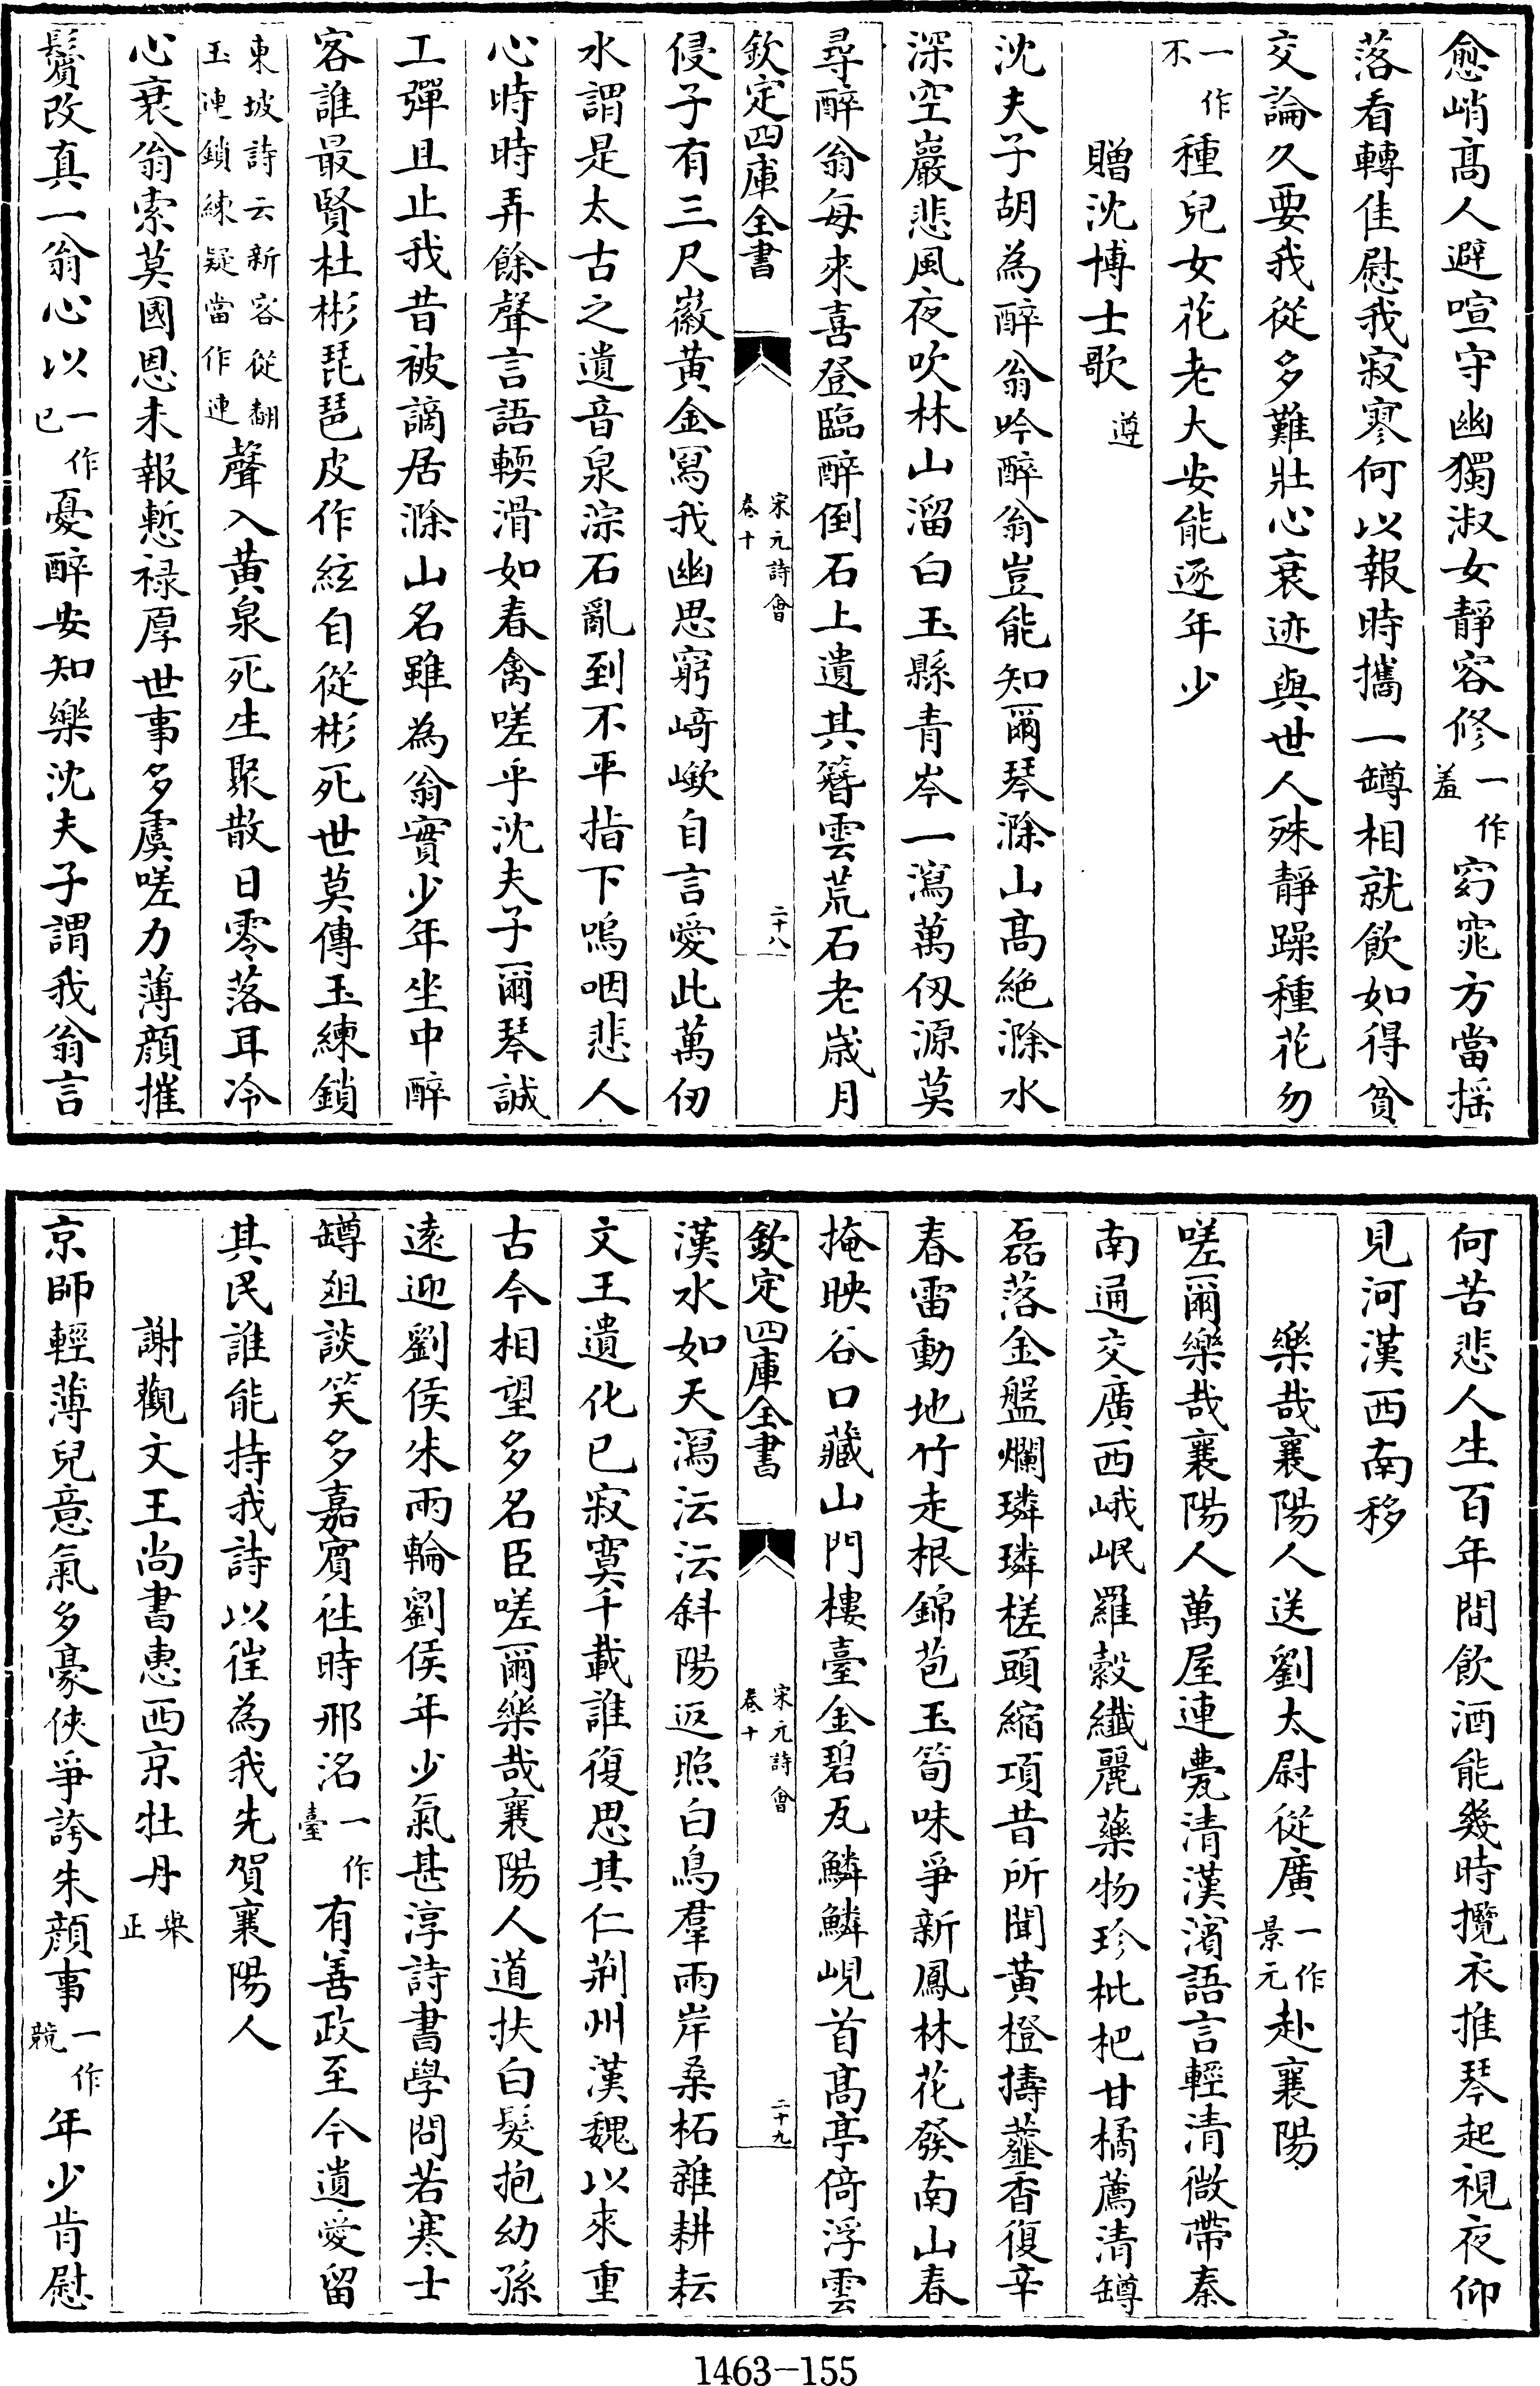 愈峭髙人避喧守幽獨淑女靜容修一作羞窈窕方當揺
落看轉佳慰我寂寥何以報時攜一罇相就飲如得貧
交論久要我從多難壯心衰迹與世人殊靜躁種花勿
一作不種兒女花老大安能逐年少
贈沈博士歌遵
沈夫子胡為醉翁吟醉翁豈能知爾琴滁山髙絶滁水
深空巖悲風夜吹林山溜白玉縣青岑一瀉萬仭源莫
尋醉翁每來喜登臨醉倒石上遺其簪雲荒石老歳月
欽定四庫全書
宋元詩會
卷十
二十八
侵子有三尺徽黄金寫我幽思窮﨑嶔自言愛此萬仞
水謂是太古之遺音泉淙石亂到不平指下嗚咽悲人
心時時弄餘聲言語輭滑如春禽嗟乎沈夫子爾琴誠
工彈且止我昔被謫居滁山名雖為翁實少年坐中醉
客誰最賢杜彬琵琶皮作絃自從彬死世莫傳玉練鎖
東坡詩云新客從翻玉連鎖練疑當作連聲入黄泉死生聚散日零落耳冷
心衰翁索莫國恩未報慙禄厚世事多虞嗟力薄顔摧
鬢改真一翁心以一作已憂醉安知樂沈夫子謂我翁言
何苦悲人生百年間飲酒能幾時攬衣推琴起視夜仰
見河漢西南移
樂哉襄陽人送劉太尉從廣一作景元赴襄陽
嗟爾樂哉襄陽人萬屋連甍清漢濱語言輕清微帶秦
南通交廣西峨岷羅縠纖麗藥物珍枇杷甘橘薦清罇
磊落金盤爛璘璘槎頭縮項昔所聞黄橙擣虀香復辛
春雷動地竹走根錦苞玉筍味爭新鳳林花發南山春
掩映谷口藏山門樓臺金碧瓦鱗鱗峴首髙亭倚浮雲
欽定四庫全書
宋元詩會
卷十
二十九
漢水如天瀉沄沄斜陽返照白鳥羣兩岸桑柘雜耕耘
文王遺化已寂寞千載誰復思其仁荆州漢魏以來重
古今相望多名臣嗟爾樂哉襄陽人道扶白髮抱幼孫
遠迎劉侯朱兩輪劉侯年少氣甚淳詩書學問若寒士
罇爼談笑多嘉賓徃時邢洺一作臺有善政至今遺愛留
其民誰能持我詩以徃為我先賀襄陽人
謝觀文王尚書惠西京牡丹舉正
京師輕薄兒意氣多豪俠爭誇朱顔事一作競年少肯慰
1463-155